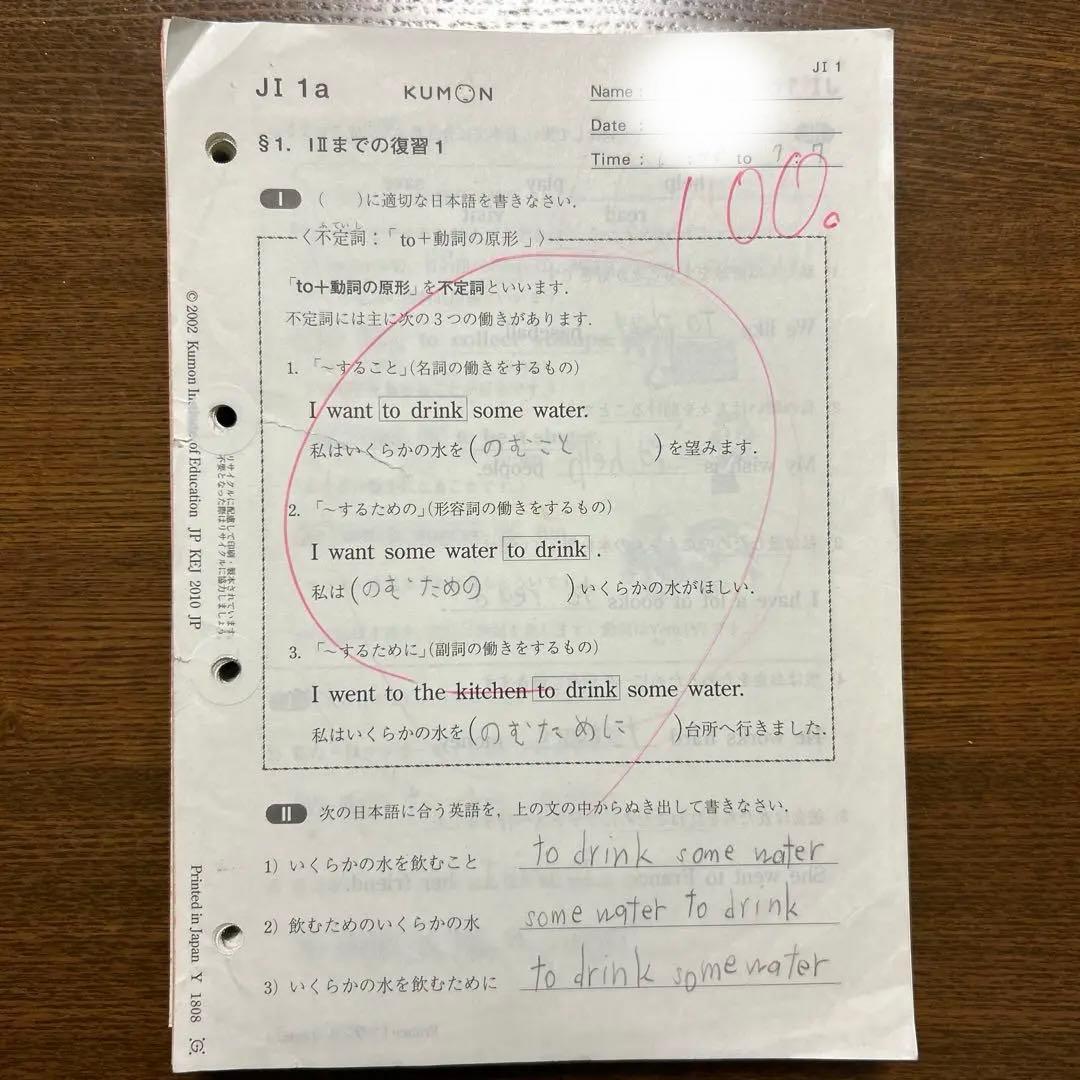 JI 1
JI 1a
KUMON
Name :
Date :
Time : to 7:7
100
§1. IⅡまでの復習1
I ( )に適切な日本語を書きなさい.
〈不定詞:「to+動詞の原形」〉
ふていし
「to+動詞の原形」を不定詞といいます.
不定詞には主に次の3つの働きがあります.
1. 「~すること」(名詞の働きをするもの)
I want to drink some water.
私はいくらかの水を(のむこと)を望みます.
2. 「~するための」(形容詞の働きをするもの)
I want some water to drink .
私は(のむための)いくらかの水がほしい.
3. 「~するために」(副詞の働きをするもの)
I went to the kitchen to drink some water.
私はいくらかの水を(のむために)台所へ行きました.
II 次の日本語に合う英語を, 上の文の中からぬき出して書きなさい.
1) いくらかの水を飲むこと to drink some water
2) 飲むためのいくらかの水 some water to drink
3) いくらかの水を飲むために to drink some water
© 2002 Kumon Institute of Education JP KEJ 2010 JP
リサイクルに配慮して印刷・製本されています.
不要となった際はリサイクルに協力しましょう.
Printed in Japan Y 1808 G